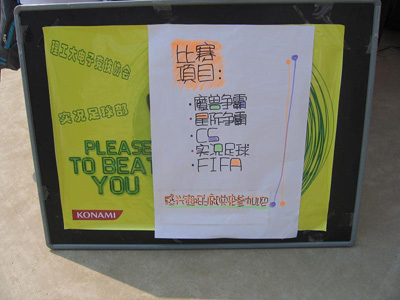 理工大电子竞技协会
实况足球部
PLEASE
TO BEAT
YOU
KONAMI
比赛
项目:
·魔兽争霸
·星际争霸
·CS
·实况足球
·FIFA
感兴趣的